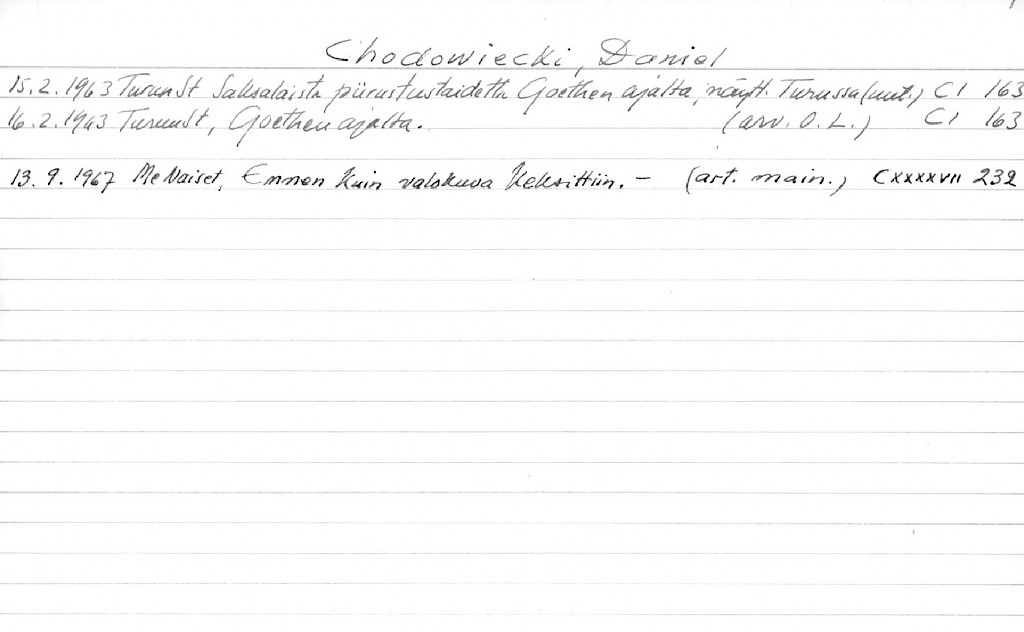 Chodowiecki, Daniel
15.2.1963 TurunSt Saksalaista piirustustaidetta Goethen ajalta, näytt. Turussa (uut.) CI 163
16.2.1963 TurunSt, Goethen ajalta. (arv. O. L.) CI 163
13. 9. 1967 MeNaiset, Ennen kuin valokuva keksittiin. - (art. main.) CXXXXVII 232